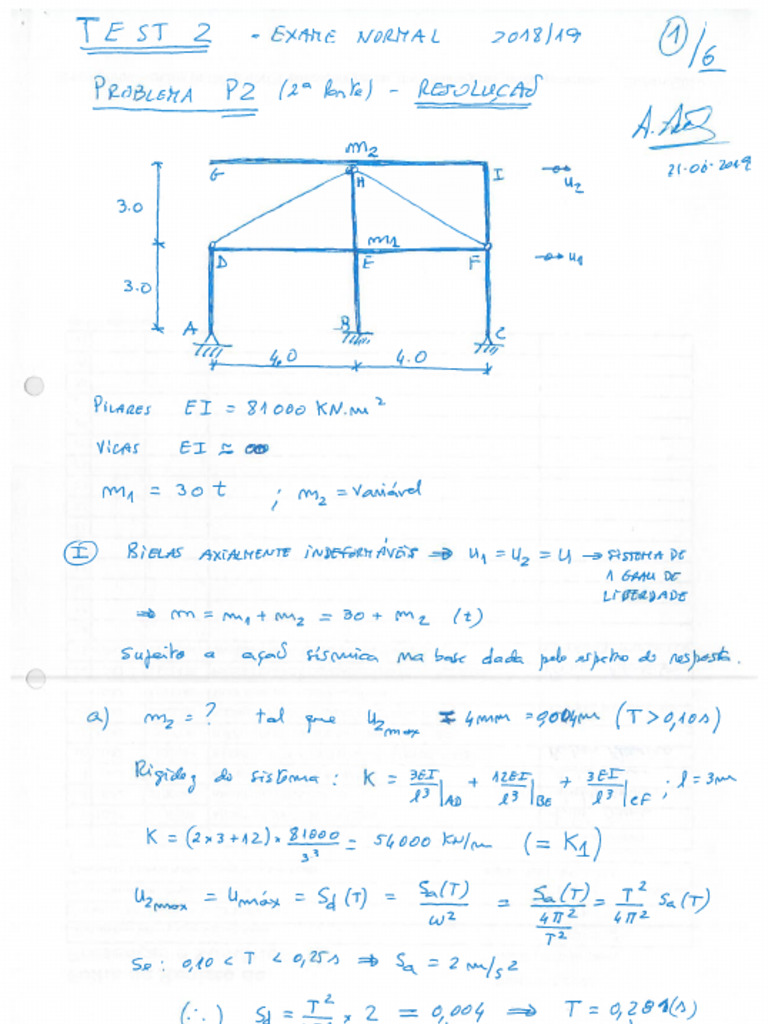 TEST 2 - EXAME NORMAL 2018/19
1/6
PROBLEMA P2 (2ª Parte) - RESOLUÇAÕ
21-06-2019
m2
G H I
u2
3.0
m1
D E F
u1
3.0
A B C
4,0 4.0
PILARES EI = 81000 KN.m²
VIGAS EI ≈ ∞
m1 = 30 t ; m2 = variável
I BIELAS AXIALMENTE INDEFORMÁVEIS ⇒ u1 = u2 = u → SISTEMA DE
1 GRAU DE
LIBERDADE
⇒ m = m1 + m2 = 30 + m2 (t)
Sujeito a açaõ sísmica na base dada pelo espetro de resposta.
a) m2 = ? tal que u2max = 4mm = 0,004m (T > 0,10s)
Rigidez do sistema : K = 3EI/l³|AD + 12EI/l³|BE + 3EI/l³|CF ; l = 3m
K = (2×3+12) × 81000/3³ = 54000 KN/m (= K1)
u2max = umáx = Sd(T) = Sa(T)/ω² = Sa(T)/(4π²/T²) = T²/4π² Sa(T)
Se : 0,10 < T < 0,25s ⇒ Sa = 2 m/s²
(∴) Sd = T² × 2 = 0,004 ⇒ T = 0,281(s)